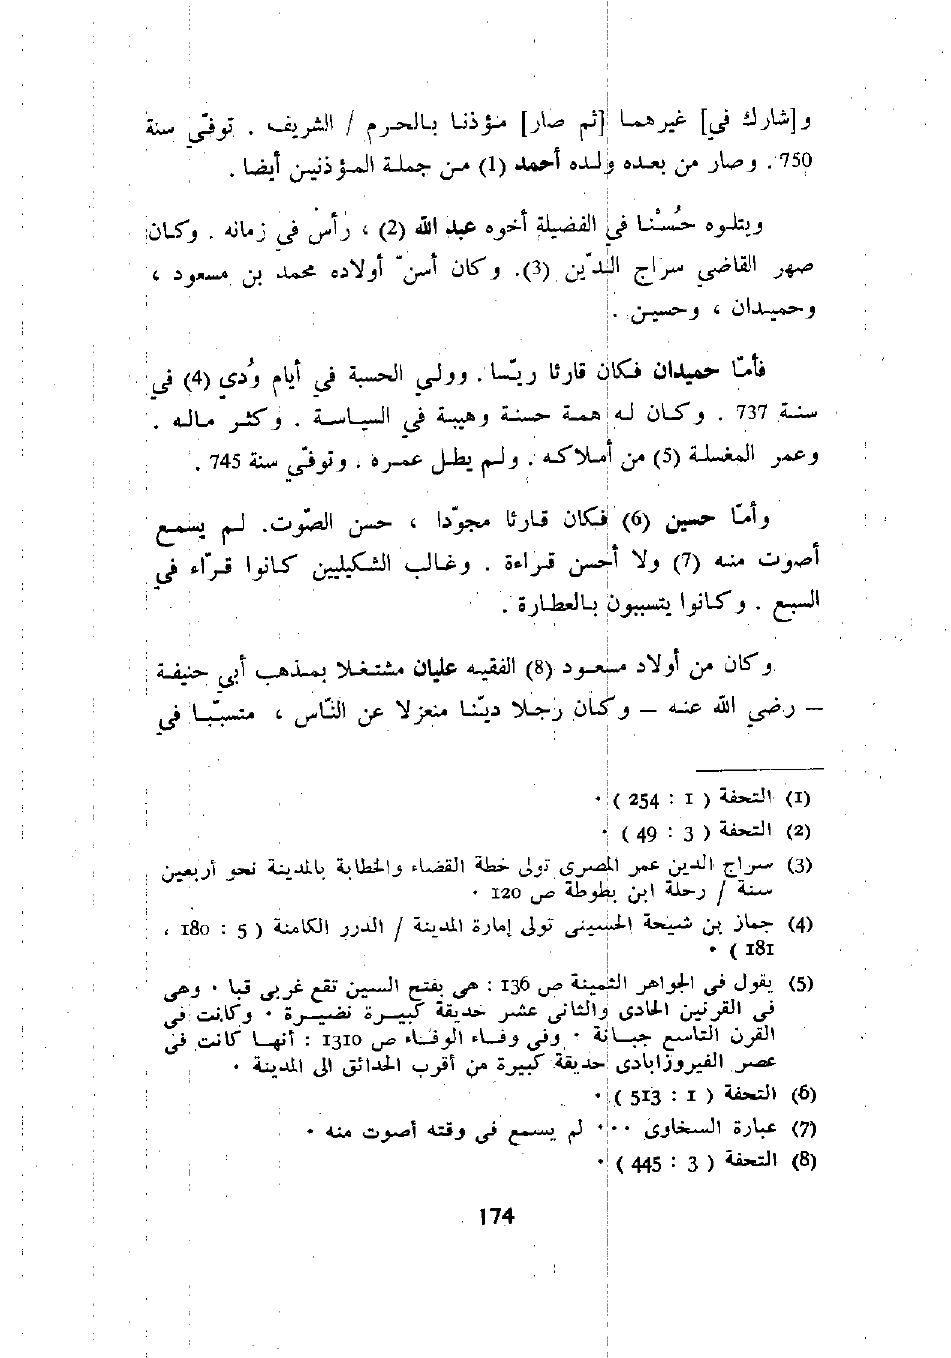 و[شارك في] غيرهما [ثم صار] مؤذنا بالحرم / الشريف . توفّي سنة
750 . وصار من بعده ولده أحمد (1) من جملة المؤذنين أيضا .
ويتلوه حُسْنا في الفضيلة أخوه عبد الله (2) ، رأس في زمانه . وكان
صهر القاضي سراج الدّين (3). وكان أسنّ أولاده محمد بن مسعود ،
وحميدان ، وحسين .
فأمّا حميدان فكان قارئا ريّسا . وولي الحسبة في أيام وُدي (4) في
سنة 737 . وكان له همة حسنة وهيبة في السياسة . وكثر ماله .
وعمر المغسلة (5) من أملاكه . ولم يطل عمره . وتوفّي سنة 745 .
وأمّا حسين (6) فكان قارئا مجوّدا ، حسن الصّوت. لم يسمع
أصوت منه (7) ولا أحسن قراءة . وغالب الشكيليين كانوا قرّاء في
السبع . وكانوا يتسببون بالعطارة .
وكان من أولاد مسعود (8) الفقيه عليان مشتغلا بمذهب أبي حنيفة
– رضي الله عنه – وكان رجلا ديّنا منعزلا عن النّاس ، متسبّبا في
(1) التحفة ( 1 : 254 ) .
(2) التحفة ( 3 : 49 ) .
(3) سراج الدين عمر المصرى تولى خطة القضاء والخطابة بالمدينة نحو أربعين
سنة / رحلة ابن بطوطة ص 120 .
(4) جماز بن شيحة الحسينى تولى إمارة المدينة / الدرر الكامنة ( 5 : 180 ،
181 ) .
(5) يقول فى الجواهر الثمينة ص 136 : هى بفتح السين تقع غربى قبا . وهى
فى القرنين الحادى والثانى عشر حديقة كبيرة نضيرة . وكانت فى
القرن التاسع جبانة . وفى وفاء الوفاء ص 1310 : أنها كانت فى
عصر الفيروزابادى حديقة كبيرة من أقرب الحدائق الى المدينة .
(6) التحفة ( 1 : 513 ) .
(7) عبارة السخاوى ... لم يسمع فى وقته أصوت منه .
(8) التحفة ( 3 : 445 ) .
174